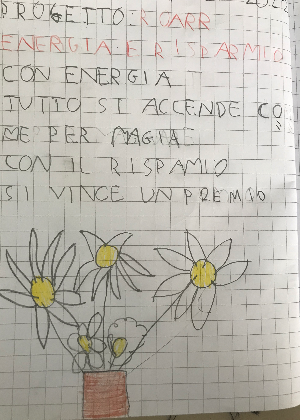 PROGETTO: R CARR
ENERGIA E RISPARMIO
CON ENERGIA
TUTTO SI ACCENDE CO
ME PER MAGIA
CON IL RISPAMIO
SI VINCE UN PREMIO